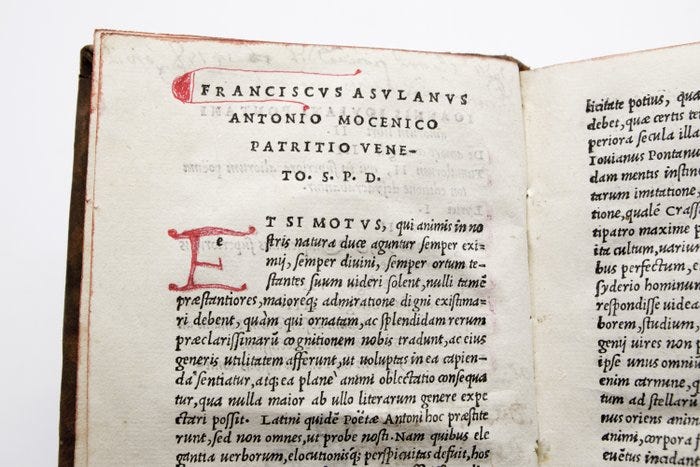 FRANCISCVS ASVLANVS
ANTONIO MOCENICO
PATRITIO VENE-
TO. S. P. D.
E e T SI MOTVS, qui animis in no
stris natura duce aguntur semper exi-
mij, semper diuini, semper ortum te-
stantes suum uideri solent, nulli tamē
præstantiores, maioreq; admiratione digni existima-
ri debent, quàm qui ornatam, ac splendidam rerum
præclarissimarū cognitionem nobis tradunt, ac eius
generis utilitatem afferunt, ut uoluptas in ea capien-
da sentiatur, atq; ea planè animi oblectatio consequa
tur, qua nulla maior ab ullo literarum genere expe
ctari possit. Latini quidē Poëtæ Antoni hoc præstite
runt, sed non omnes, ut probe nosti. Nam quibus ele
gantia uerborum, elocutionisq; perspicuitas defuit, hos
licitate potius, qua
debet, quæ certis te
periora secula illa
Iouianus Pontanu
dam mentis instin
tarum imitatione,
tione, qualē Crass
tipatro maxime p
ita cultum, uarium
bus perfectum, e
syderio hominum
respondisse uidea
borem, studium,
genij uires non p
ipse unus omniū
enim carmine, q
tum ad stellarū
nus oriens anim
enati, corpora
euētus inadant